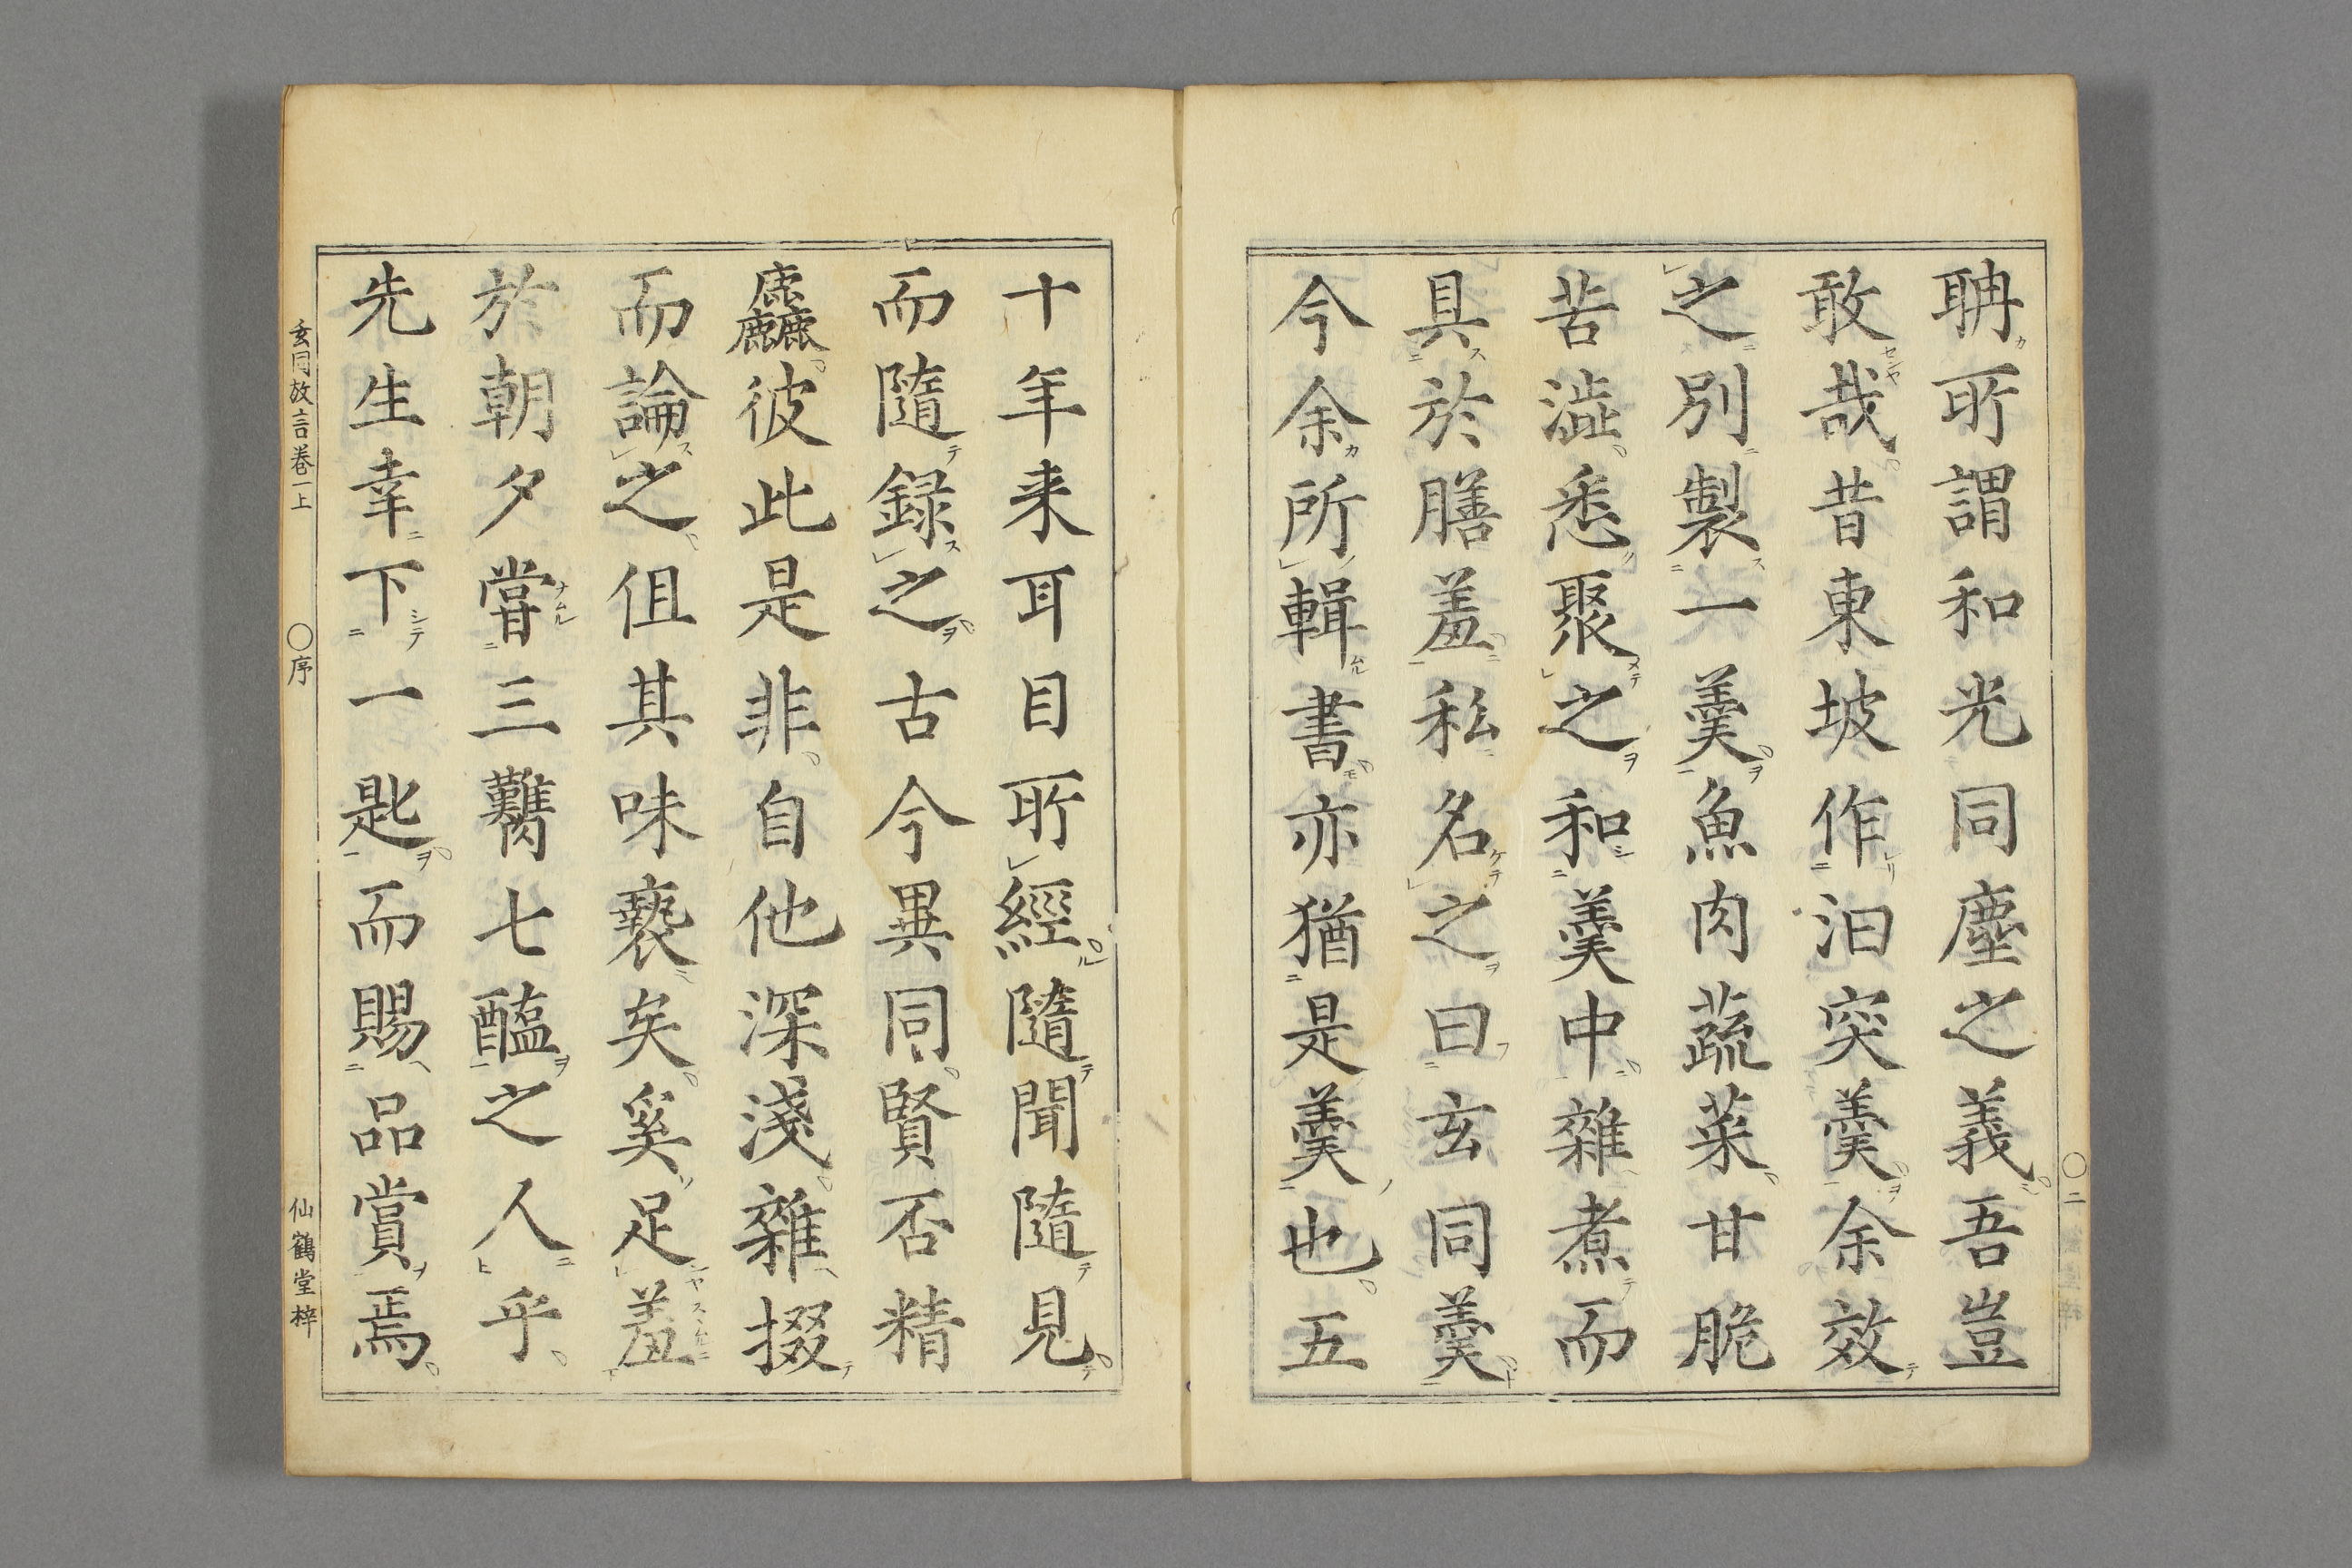 聃所謂和光同塵之義吾豈
敢哉昔東坡作汨突羹余效
之別製一羹魚肉蔬菜甘脆
苦澁悉聚之和羹中雜煮而
具於膳羞私名之曰玄同羹
今余所輯書亦猶是羹也五
十年来耳目所經隨聞隨見
而隨録之古今異同賢否精
麤彼此是非自他深淺雜掇
而論之伹其味褻矣奚足羞
於朝夕嘗三臡七醢之人乎
先生幸下一匙而賜品賞焉
玄同放言巻一上 〇序 仙鶴堂梓
〇二